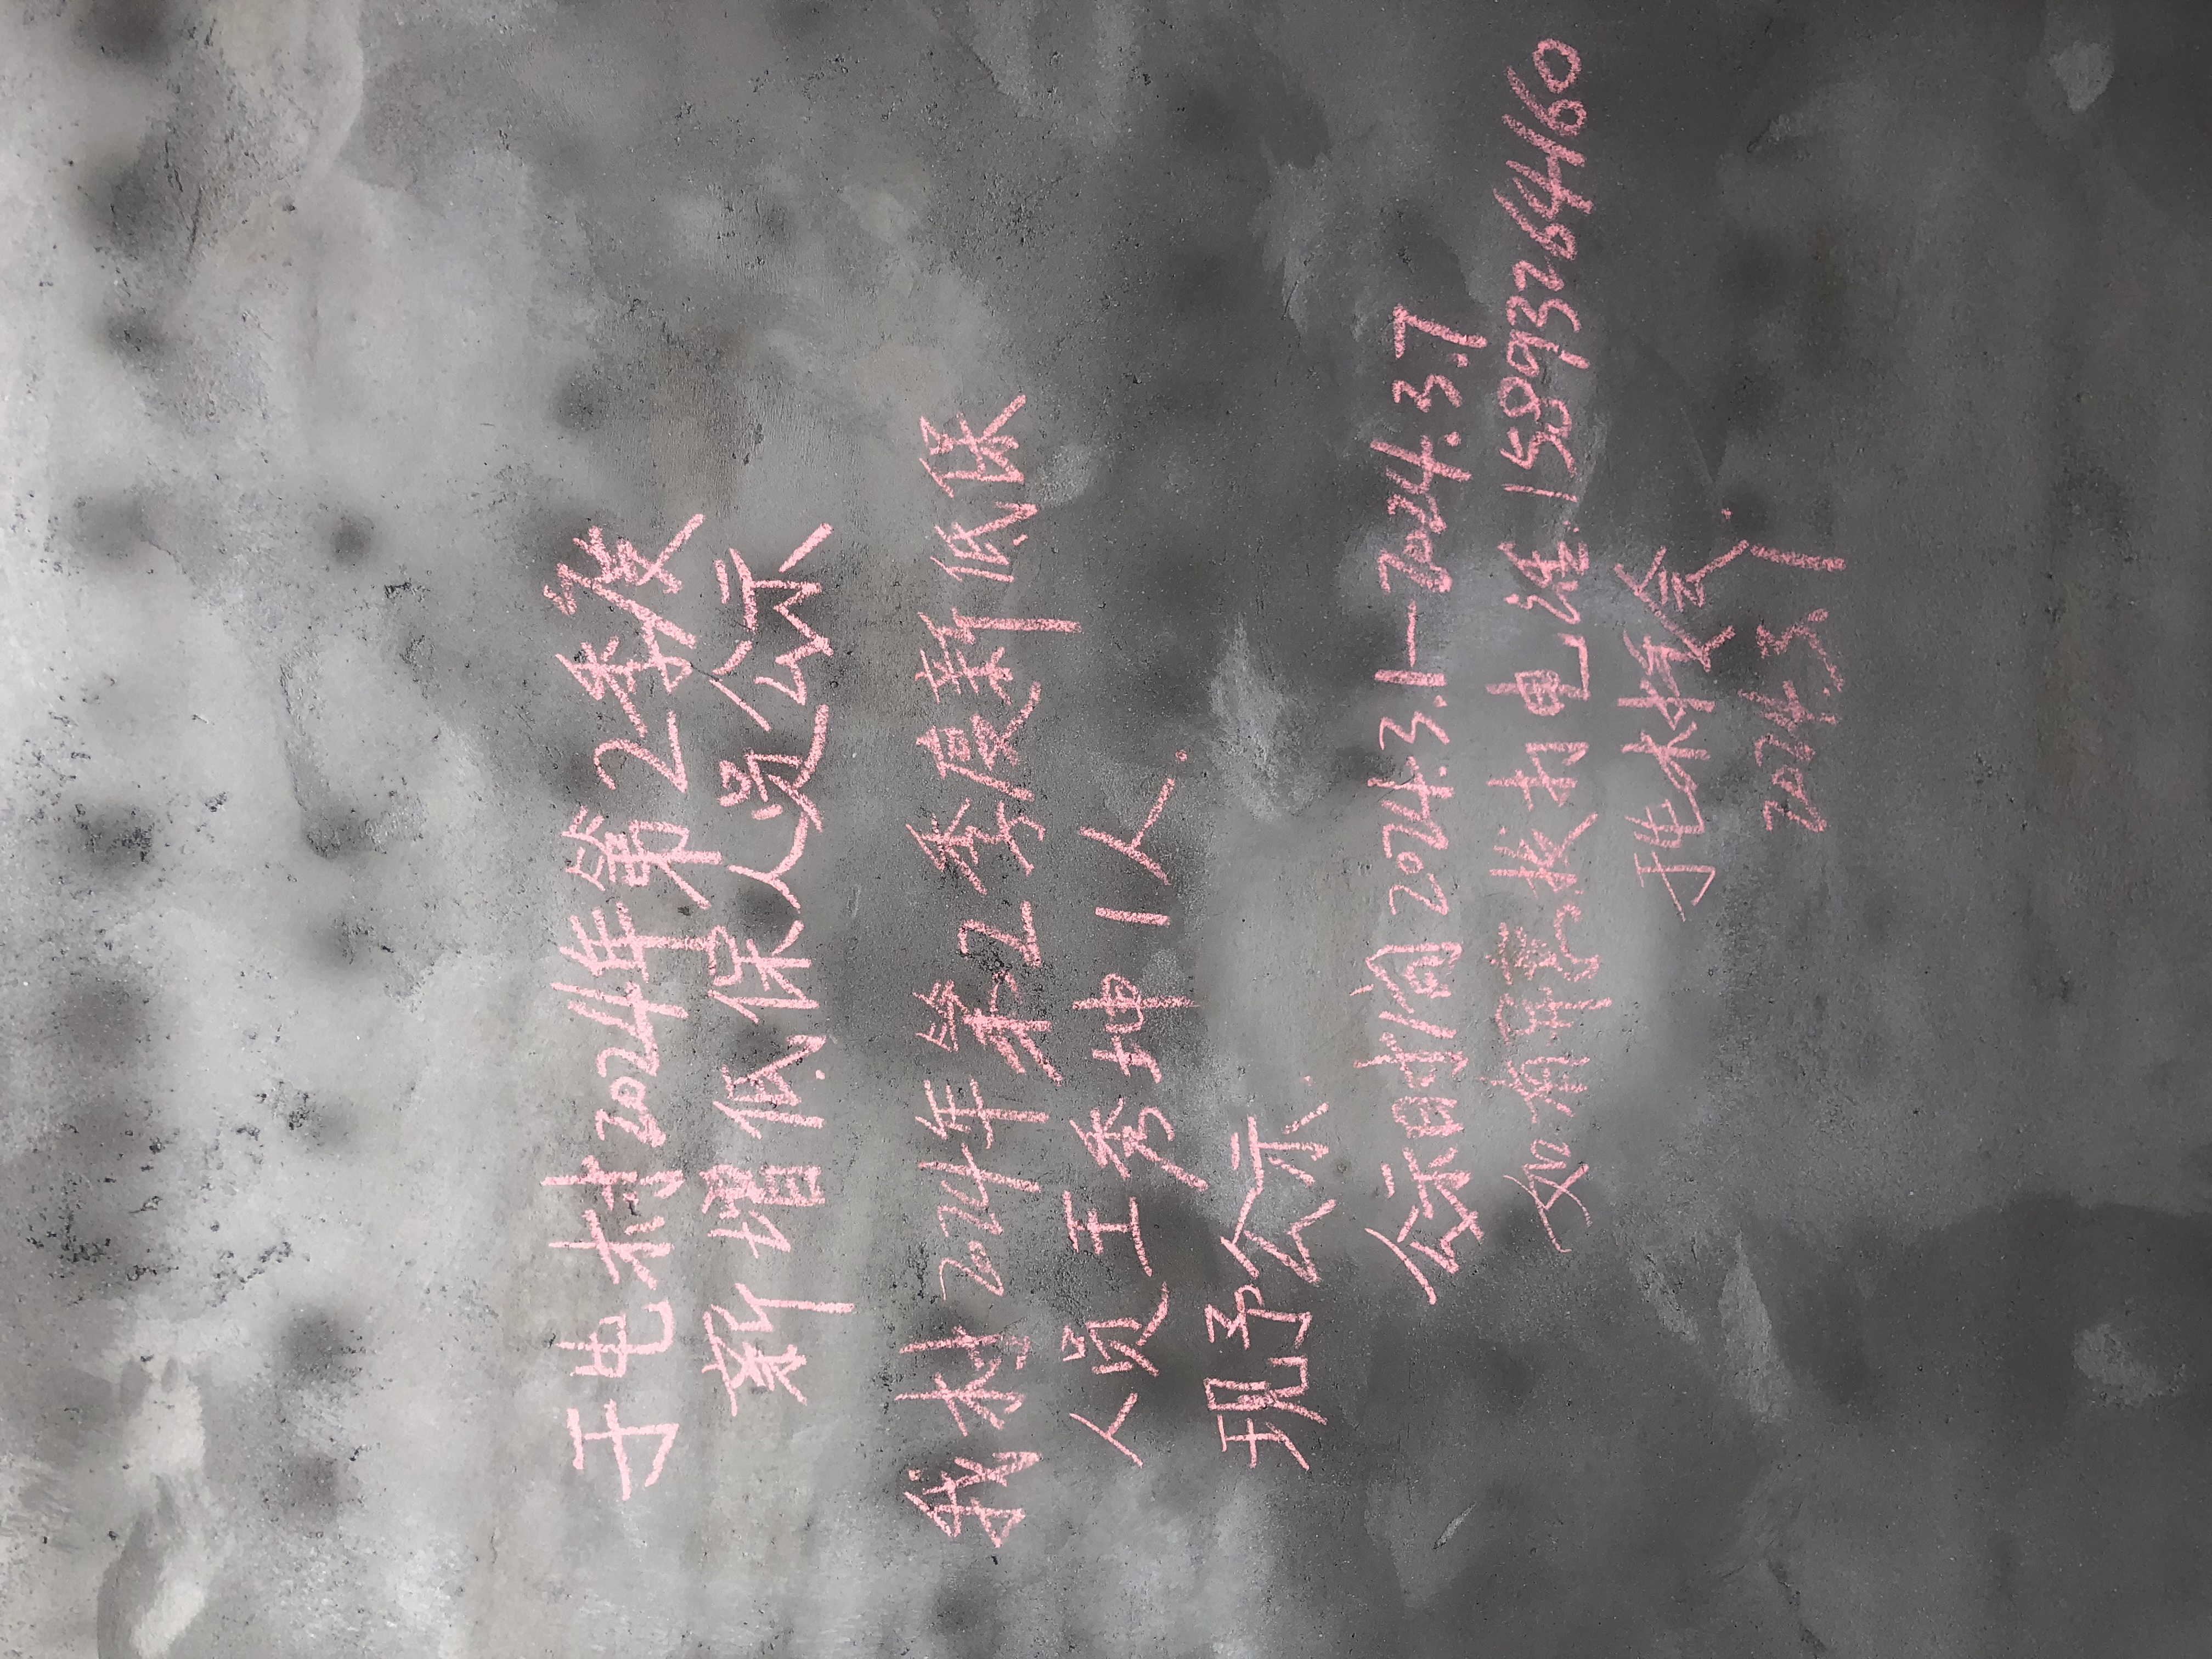 于屯村2024年第2季度
新增低保人员公示
我村2024年第2季度新低保
人员王秀坤1人.
现予公示.
公示时间2024.3.1—2024.3.7
如有异意拨打电话.15893264160
于屯村委会.
2024.3.1